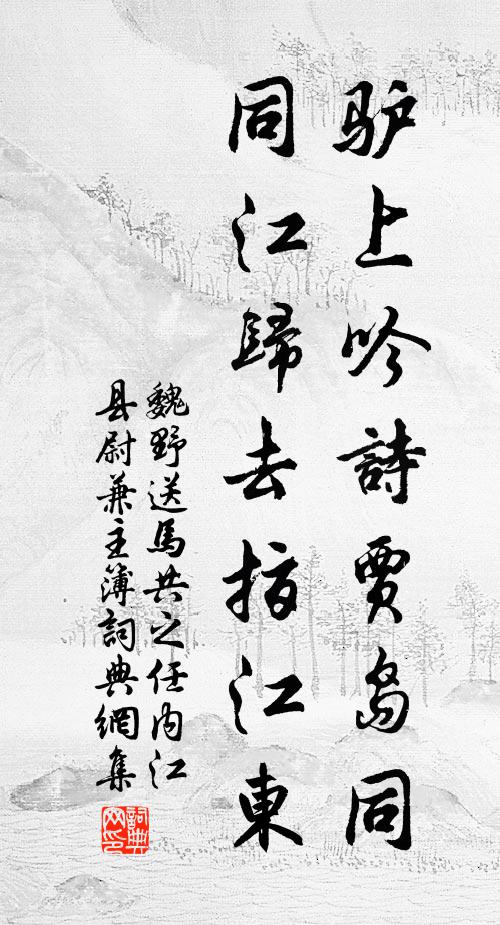 驴上吟詩賈島同
同江歸去指江東
魏野送馬共之任内江
县尉兼主簿詞典網集
詞典网印